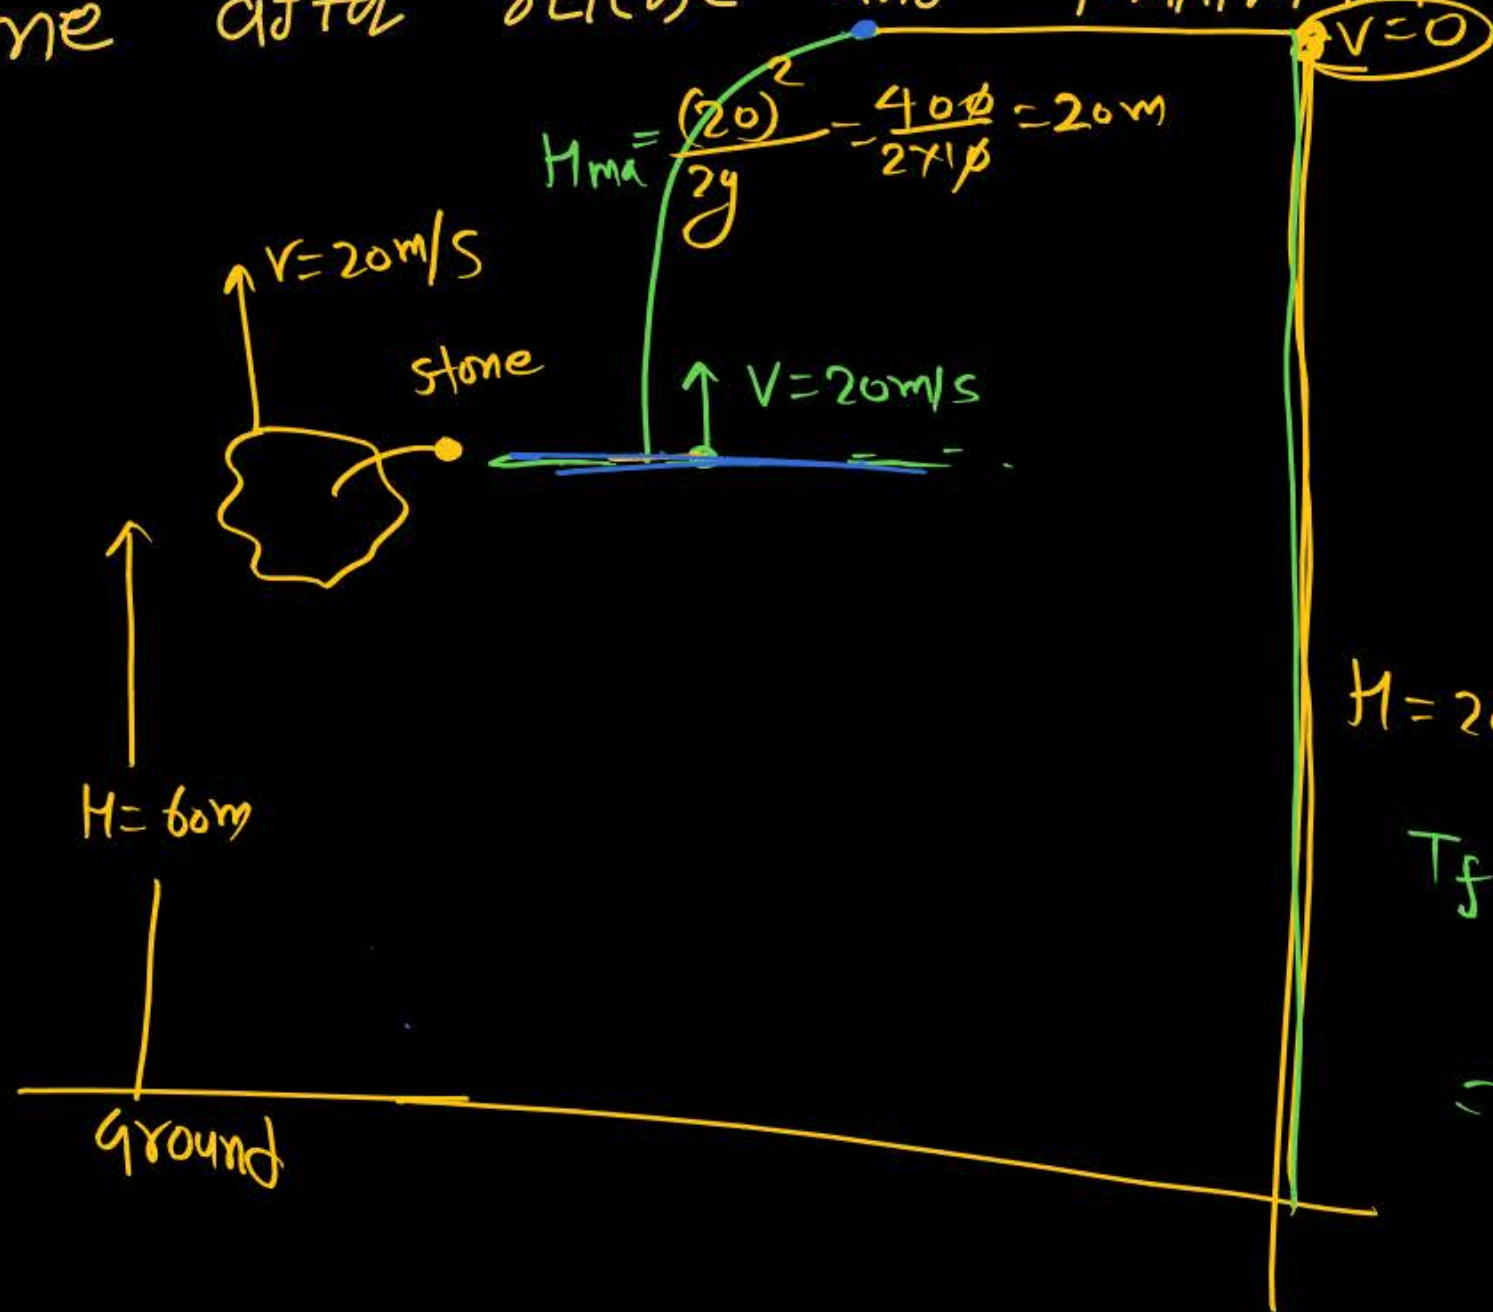 V=0
Hma = (20)²/2g = 400/2×10 = 20m
V=20m/s
stone
V=20m/s
H=2
H=60m
Tf
=
Ground